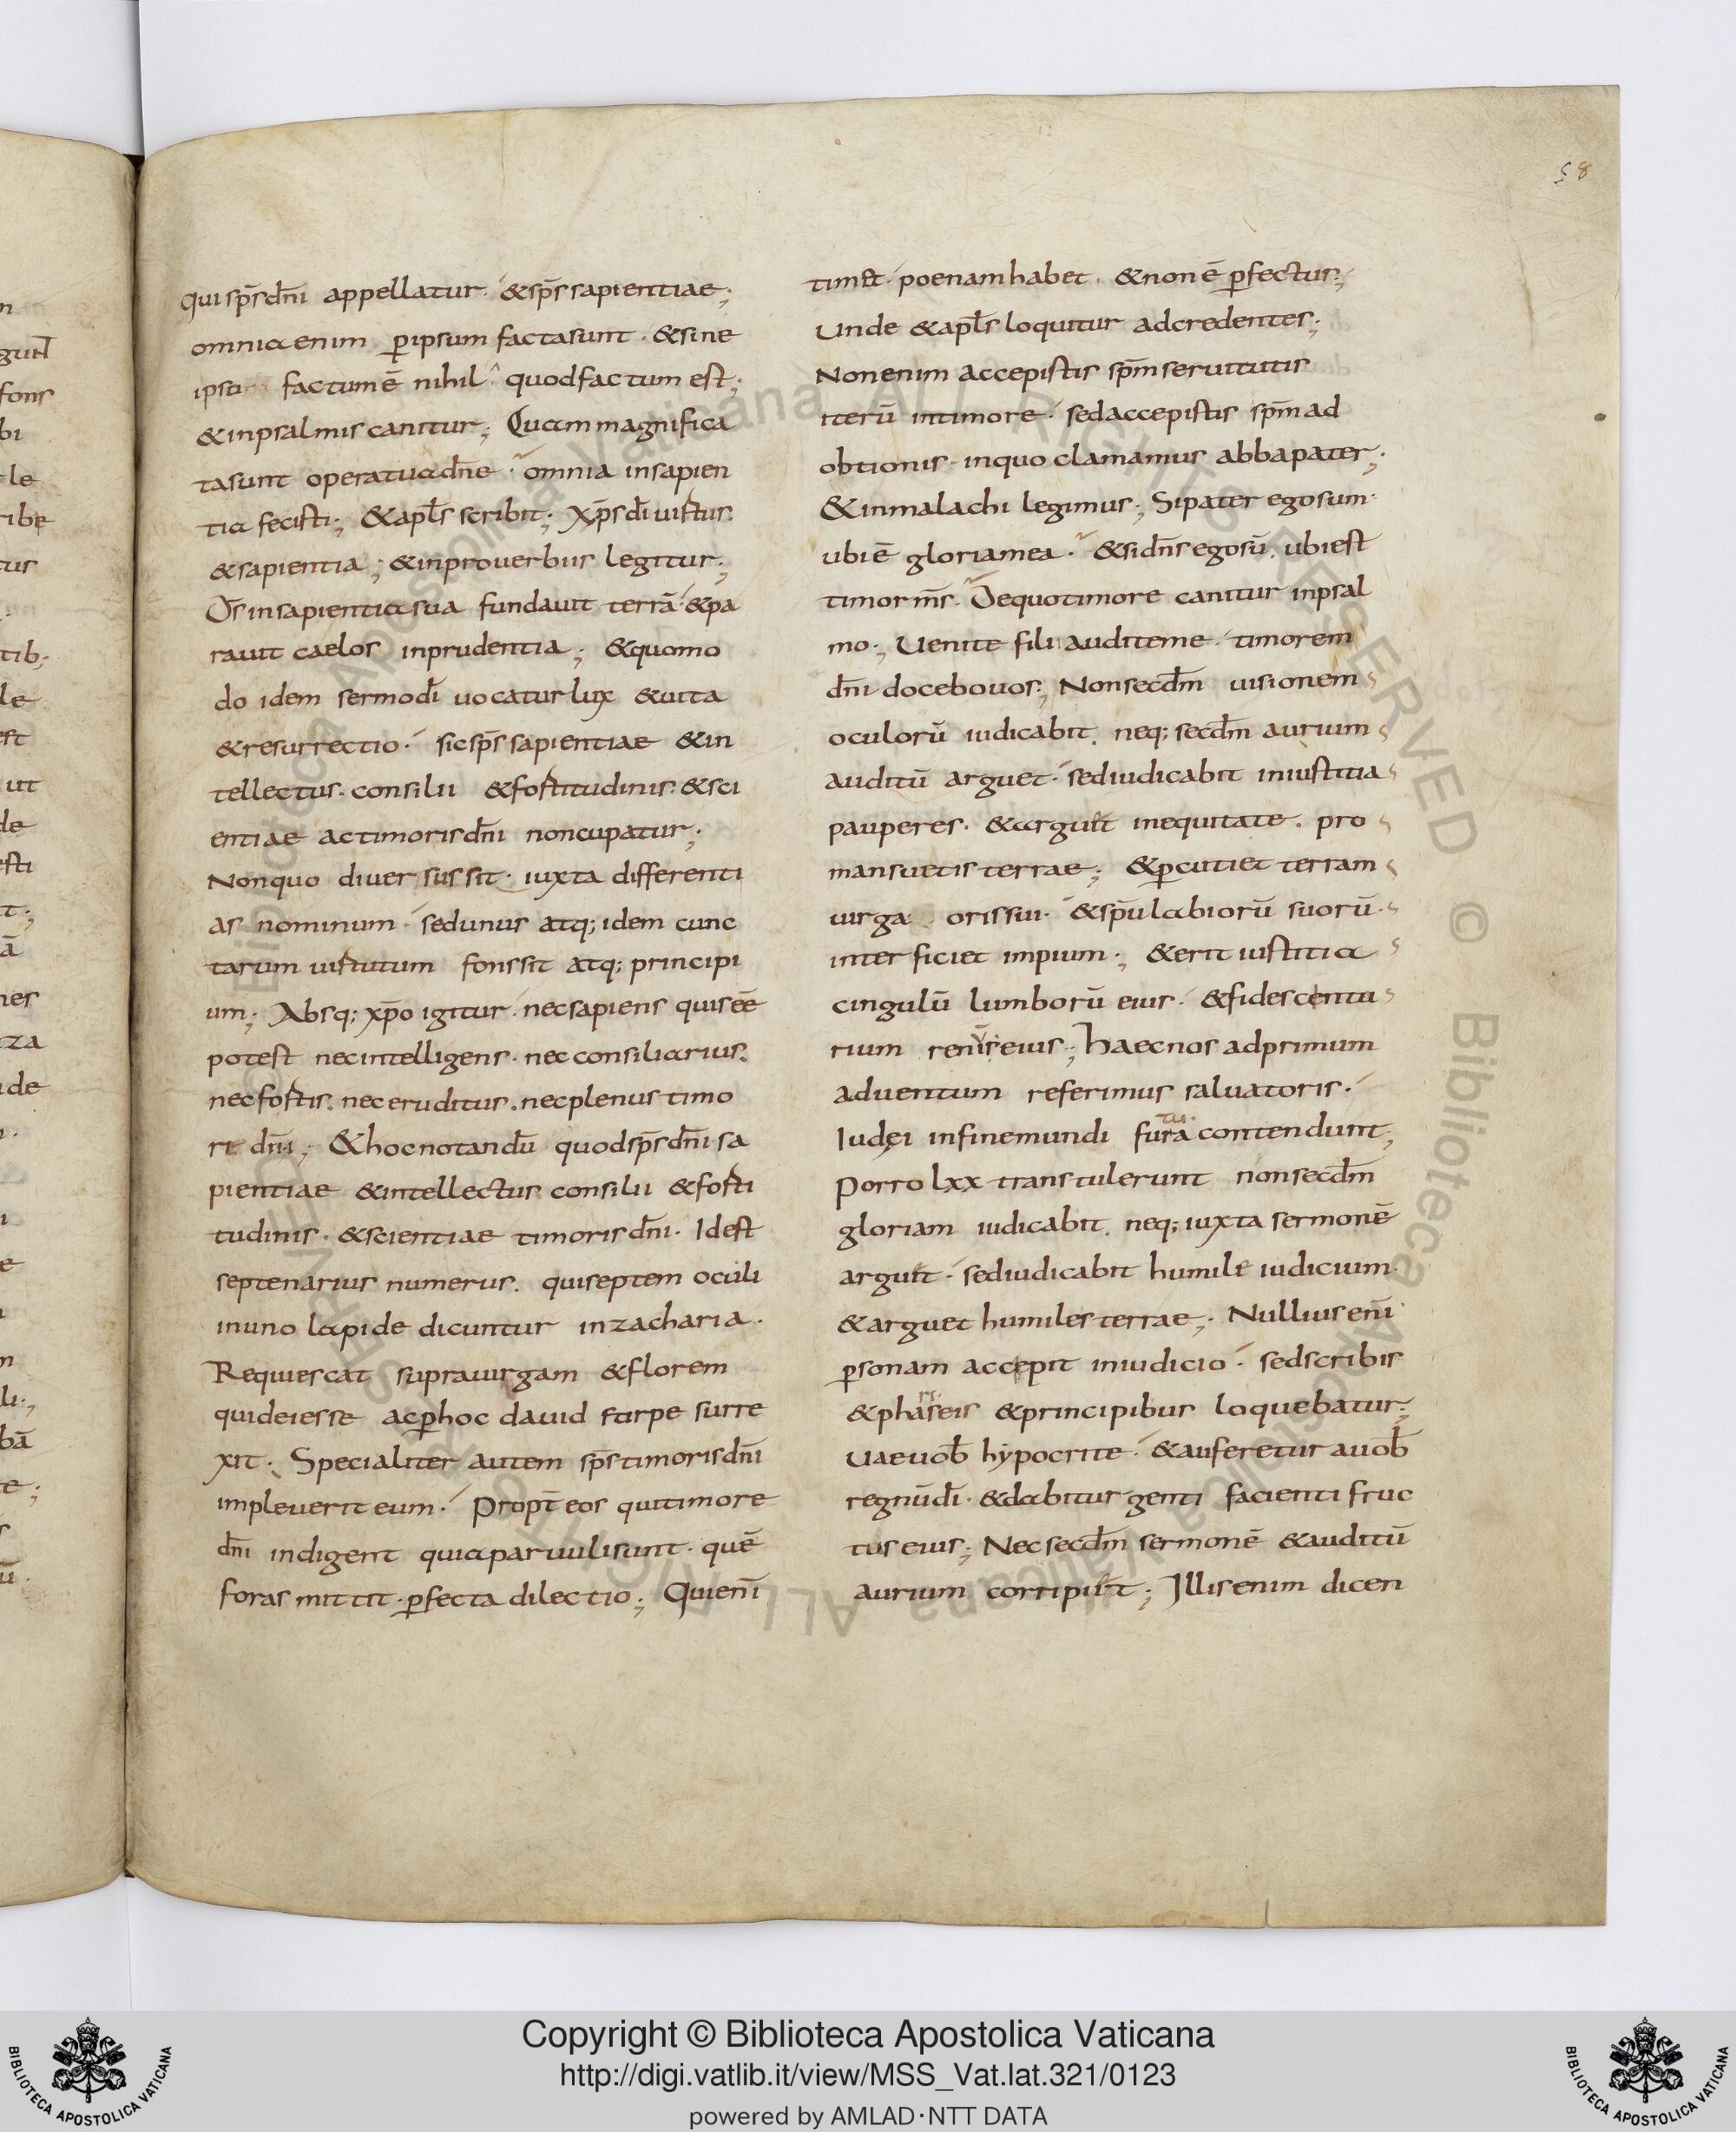 58
qui sp̄s dn̄i appellatur. & sp̄s sapientiae;
omnia enim ꝑ ipsum facta sunt. & sine
ipso factum ē nihil. quod factum est;
& in psalmis canitur; Quam magnifica
ta sunt opera tua dn̄e. omnia in sapien
tia fecisti; & apl̄s scribit; Xp̄s dī uirtus.
& sapientia; & in prouerbiis legitur;
D̄s in sapientia sua fundauit terrā. & pa
rauit caelos in prudentia; & quomo
do idem sermo dī uocatur lux & uita
& resurrectio. sic sp̄s sapientiae & in
tellectus. consilii & fortitudinis. & sci
entiae ac timoris dn̄i noncupatur;
Non quo diuersus sit. iuxta differenti
as nominum. sed unus atq; idem cunc
tarum uirtutum fons sit atq; principi
um; Absq; xp̄o igitur. nec sapiens quis eē
potest nec intelligens. nec consiliarius.
nec fortis. nec eruditus. nec plenus timo
re dn̄i; & hoc notandū quod sp̄s dn̄i sa
pientiae & intellectus consilii & forti
tudinis. & scientiae timoris dn̄i. Id est
septenarius numerus. qui septem oculi
in uno lapide dicuntur in zacharia.
Requiescat supra uirgam & florem
qui de iesse ac ꝑ hoc dauid stirpe surre
xit. Specialiter autem sp̄s timoris dn̄i
impleuerit eum. Propt̄ eos qui timore
dn̄i indigent quia paruuli sunt. quē
foras mittit. ꝑfecta dilectio; Qui enī
timet. poenam habet. & non ē ꝑfectus;
Unde & apl̄s loquitur ad credentes;
Non enim accepistis sp̄m seruitutis
iterū in timore. sed accepistis sp̄m ad
obtionis. in quo clamamus abba pater;
& in malachi legimus; Si pater ego sum.
ubi ē gloria mea. & si dn̄s ego sū. ubi est
timor m̄s. De quo timore canitur in psal
mo; Uenite fili audite me. timorem
dn̄i docebo uos; Non secd̄m uisionem
oculorū iudicabit. neq; secd̄m aurium
auditū arguet. sed iudicabit in iustitia
pauperes. & arguit in equitate. pro
mansuetis terrae; & ꝑcutiet terram
uirga oris sui. & sp̄u labiorū suorū.
interficiet impium; & erit iustitia
cingulū lumborū eius. & fides cinctu
rium renū eius; Haec nos ad primum
aduentum referimus saluatoris.
Iudęi in fine mundi futura contendunt;
Porro lxx transtulerunt non secd̄m
gloriam iudicabit. neq; iuxta sermonē
arguit. sed iudicabit humile iudicium.
& arguet humiles terrae; Nullius enī
ꝑsonam accepit in iudicio. sed scribis
& phariseis & principibus loquebatur;
Uae uob̄ hypocrite. & auferetur a uob̄
regnū dī. & dabitur genti facienti fruc
tus eius; Nec secd̄m sermonē & auditū
aurium corripuit; Illis enim dicen
Copyright © Biblioteca Apostolica Vaticana
http://digi.vatlib.it/view/MSS_Vat.lat.321/0123
powered by AMLAD·NTT DATA